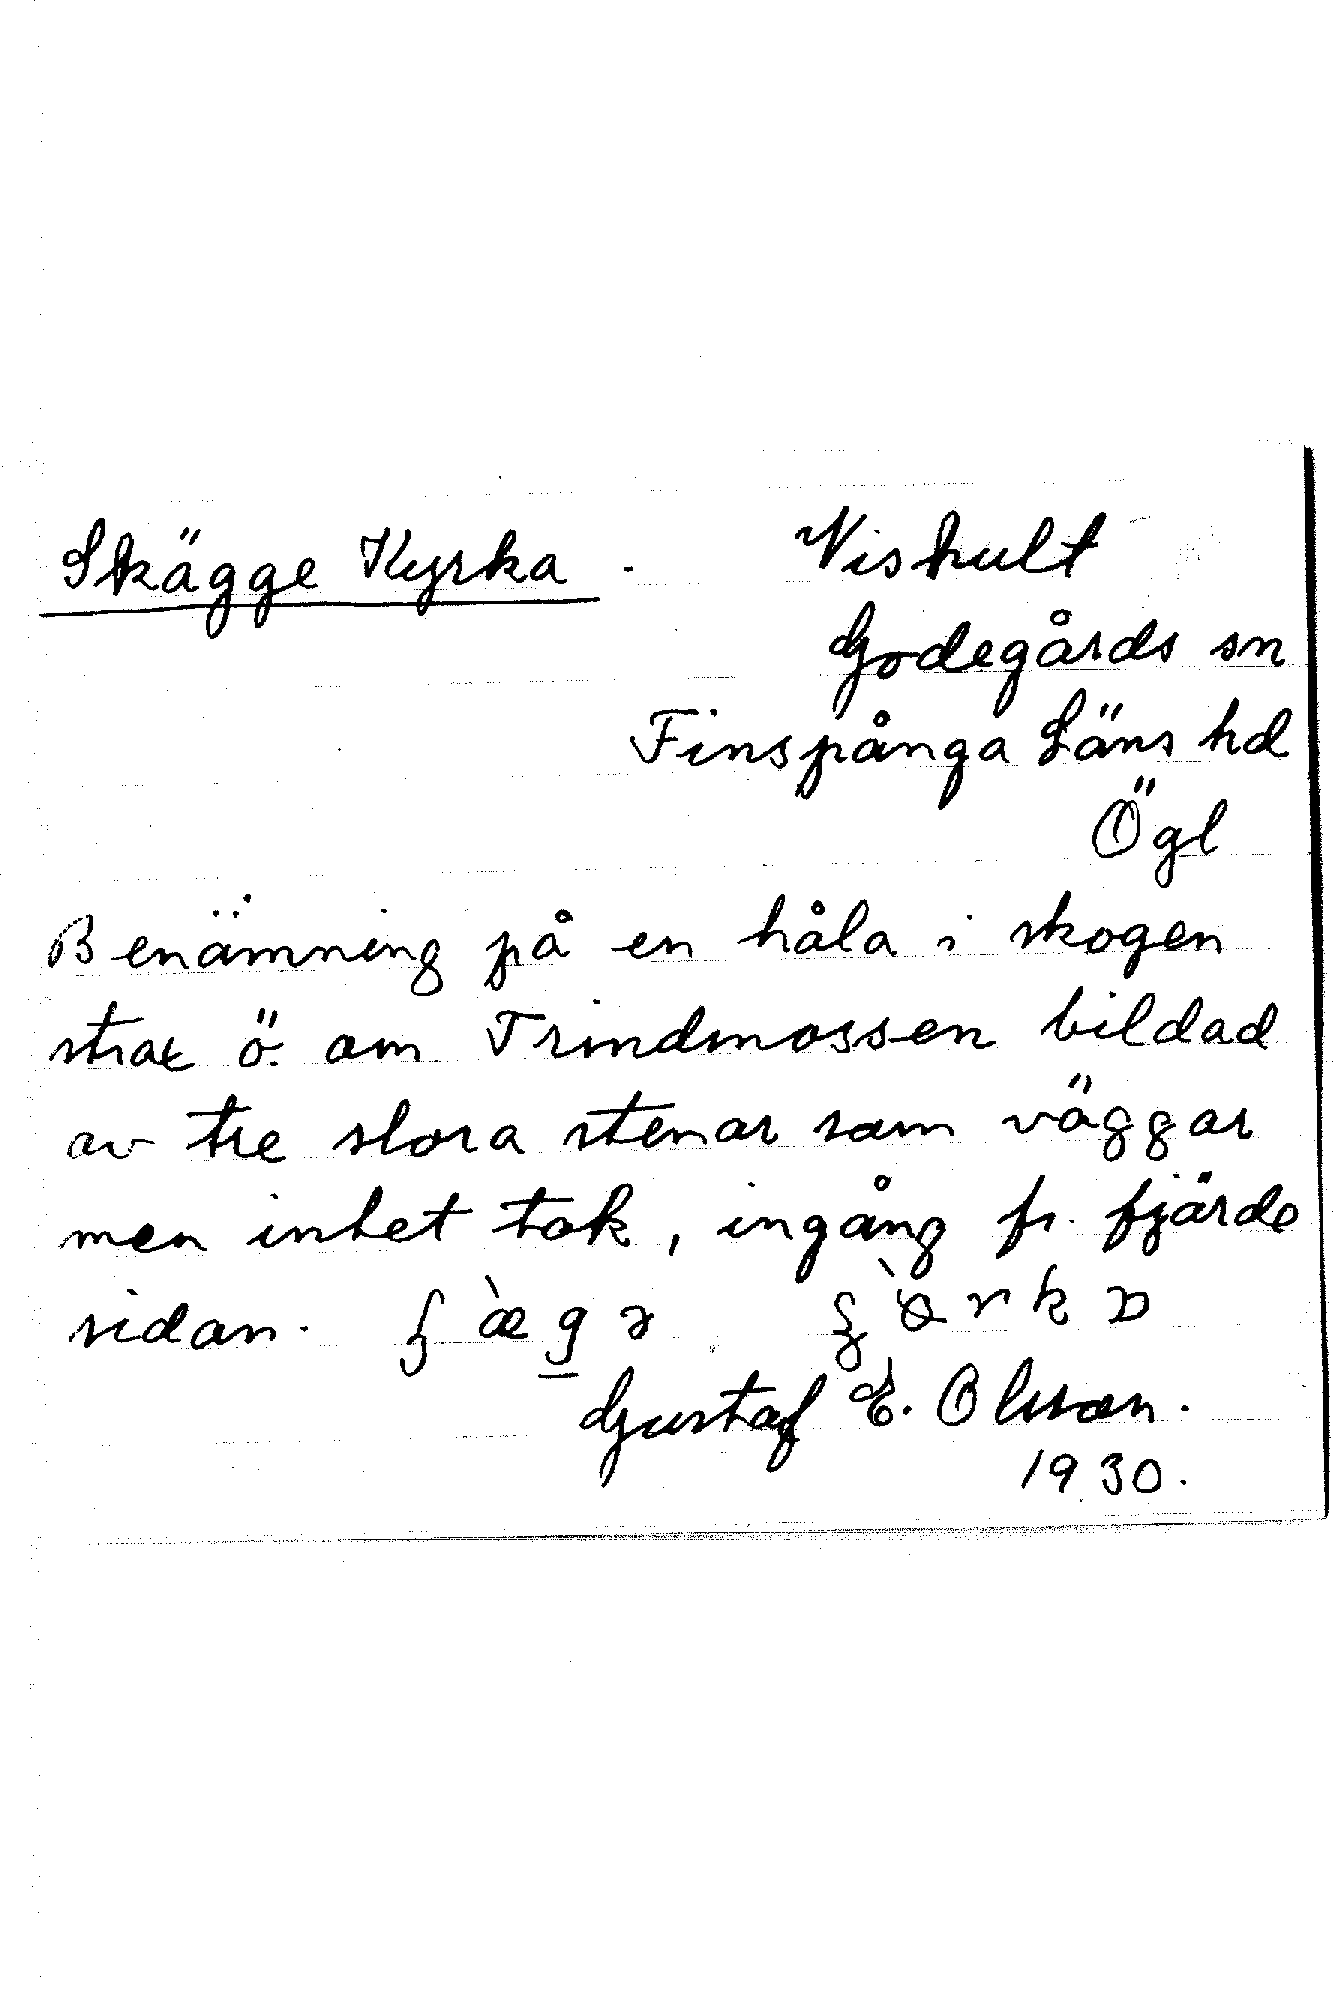 Skägge Kyrka. Viskult
Godegårds sn
Finspånga Läns hd
Ögl
Benämning på en håla i skogen
strax ö. om Trindmossen bildad
av tre stora stenar som väggar
men intet tak, ingång fr. fjärde
sidan.
Gustaf E. Olsson.
1930.